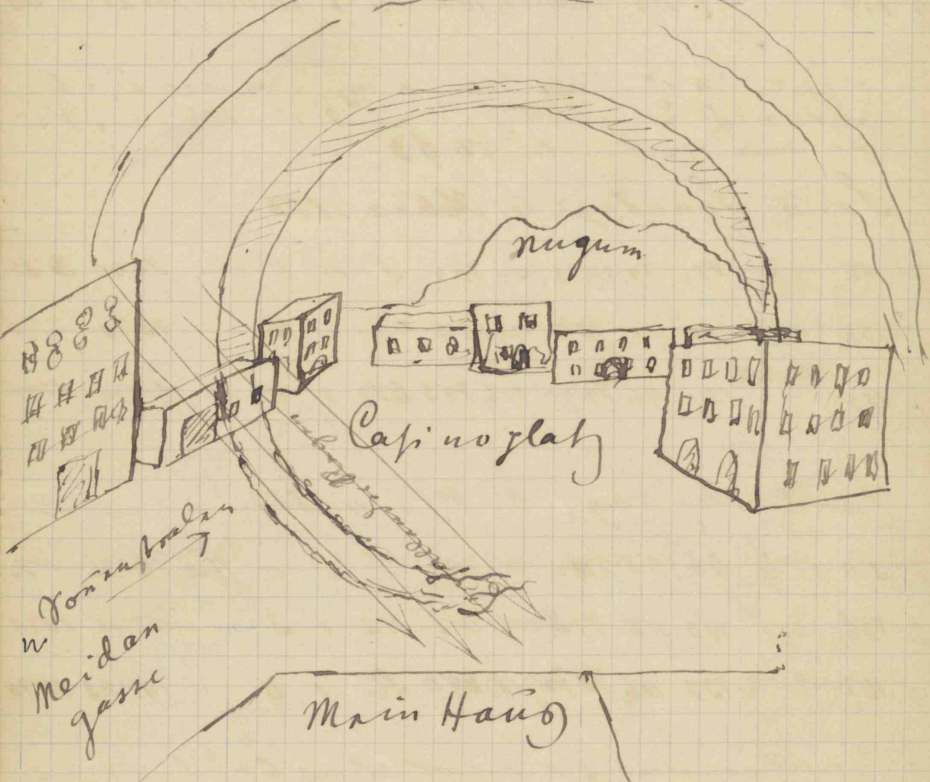 nugum
Casinoplatz
Son̄enstralen
Meidan
gasse
Mein Haus